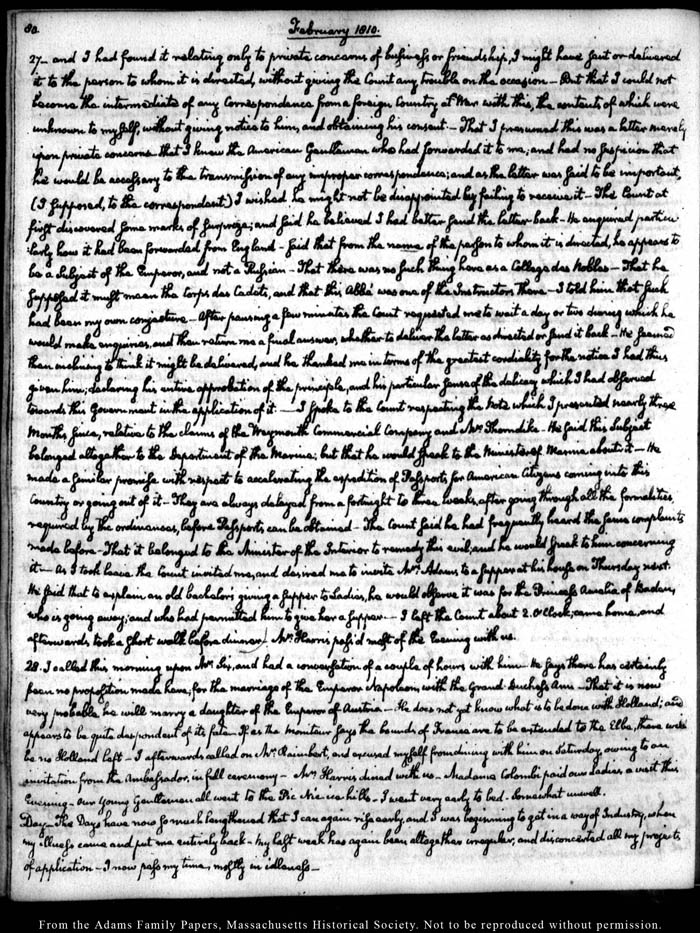 80.
February 1810.
27— and I had found it relating only to private concerns of business or friendship, I might have sent or delivered
it to the person to whom it is directed, without giving the Count any trouble on the occasion— But that I could not
become the intermediate of any Correspondence from a foreign Country at War with this, the contents of which were
unknown to myself, without giving notice to him, and obtaining his consent— That I presumed this was a letter merely
upon private concerns that I knew the American Gentleman who had forwarded it to me; and had no suspicion that
he would be accessary to the transmission of any improper correspondence; and as the letter was said to be important,
(I supposed, to the correspondent) I wished he might not be disappointed by failing to receive it— The Count at
first discovered some marks of surprize; and said he believed I had better send the letter back— He enquired particu
larly how it had been forwarded from England— said that from the name of the person to whom it is directed, he appears to
be a Subject of the Emperor, and not a Russian— That there was no such thing here as a College des Nobles— That he
supposed it must mean the Corps des Cadets, and that this Abbé was one of the Instructors there— I told him that such
had been my own conjecture— After pausing a few minutes the Count requested me to wait a day or two during which he
would make enquiries, and then return me a final answer, whether to deliver the letter as directed or send it back— He seemed
then inclining to think it might be delivered, and he thanked me in terms of the greatest cordiality for the notice I had thus
given him; declaring his entire approbation of the principle, and his particular sense of the delicacy which I had observed
towards this Government in the application of it.— I spoke to the Count respecting the Note which I presented nearly three
Months since, relative to the claims of the Weymouth Commercial Company and Mr. Thorndike— He said this Subject
belonged altogether to the Department of the Marine; but that he would speak to the Minister of Marine about it— He
made a similar promise with respect to accelerating the expedition of Passports for American Citizens coming into this
Country or going out of it— They are always delayed from a fortnight to three weeks, after going through all the formalities
required by the ordinances, before Passports can be obtained— The Count said he had frequently heard the same complaints
made before— That it belonged to the Minister of the Interior to remedy this evil; and he would speak to him concerning
it— As I took leave the Count invited me, and desired me to invite Mrs. Adams to a supper at his house on Thursday next.
He said that to explain an old bachelor's giving a supper to Ladies, he would observe it was for the Princess Amelia of Baden,
who is going away; and who had permitted him to give her a supper— I left the Count about 2. O'Clock, came home, and
afterwards took a short walk before dinner— Mr. Harris pass'd most of the Evening with us.
28. I called this morning upon Mr. Six, and had a conversation of a couple of hours with him— He says there has certainly
been no proposition made here, for the marriage of the Emperor Napoleon with the Grand-Duchess Ann— That it is now
very probable he will marry a daughter of the Emperor of Austria— He does not yet know what is to be done with Holland; and
appears to be quite despondent of its fate— If as the Moniteur says the bounds of France are to be extended to the Elbe, there will
be no Holland left— I afterwards called on Mr. Raimbert, and excused myself from dining with him on Saturday owing to an
invitation from the Ambassador, in full ceremony— Mr. Harris dined with us— Madame Colombi paid our Ladies a visit this
Evening— Our Young Gentlemen all went to the Pic Nic-ice hills— I went very early to bed. Somewhat unwell.
Day— The Days have now so much lengthened that I can again rise early, and I was beginning to get in a way of Industry, when
my illness came and put me entirely back— My last week has again been altogether irregular, and disconcerted all my projects
of application— I now pass my time, mostly in idleness—
From the Adams Family Papers, Massachusetts Historical Society. Not to be reproduced without permission.